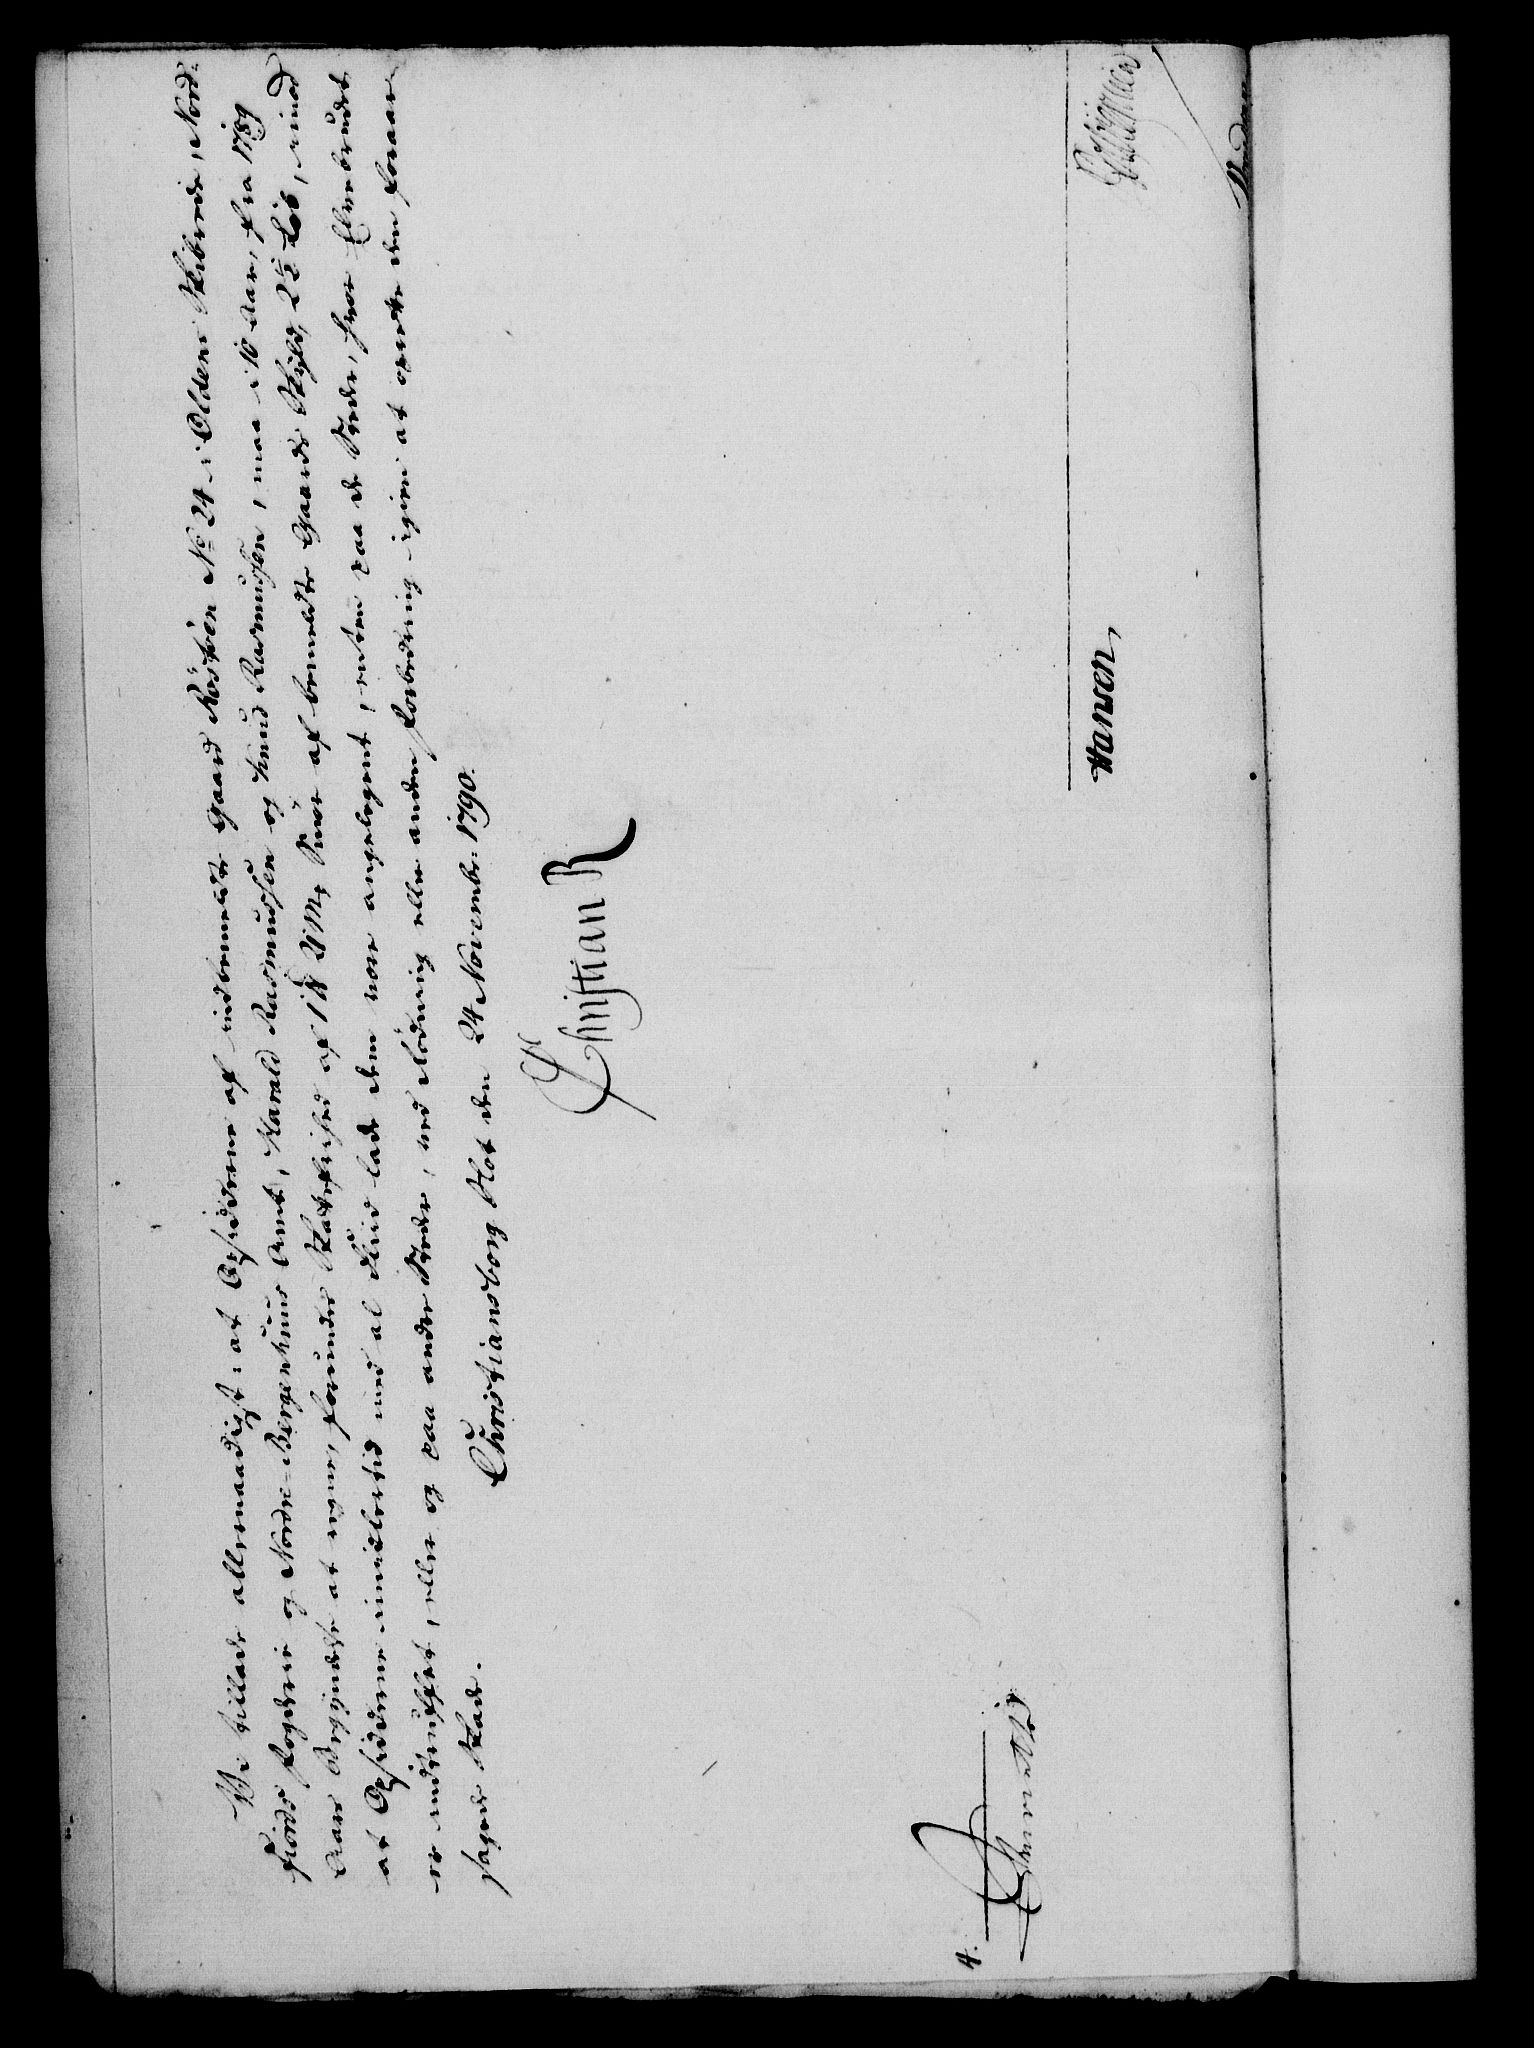 Vi tillade allernaadigst: at Opsidderne af indbemeldte Gaard Röshöen No 24 i Oldens Skibrede, Nord-
fiords Fogderie og Nordre-Bergenhuus Amt, Harald Rasmussen og Knud Rasmussen, maa i 10 Aar, fra 1789
Aars Begyndelse at regne, forundes Skatefrihed af 1 21 Mk Smör af bemeldte Gaards Skyld, 2½ Löb, imod
at Opsidderne imidlertid med al Fliid lade dem være angelegent, enten paa de Stæder, hvor Elvebrudet
er indtruffet, eller og paa andre Stæder, ved Rödning eller anden Forbedring igien at oprette den foraar-
sagede Skade.
Christiansborg Slot den 24 Novembr: 1790.
Christian R
4.
Hansen